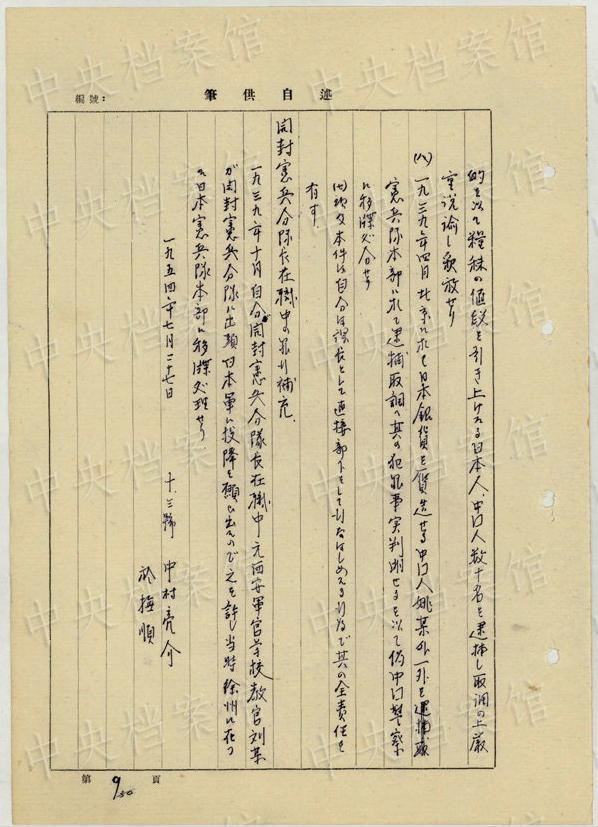 編號:
筆供自述
的を以て種秣の値段を引き上げたる日本人、中口人数十名を逮捕し取調の上厳
重説諭し釈放せり
(八) 一九三九年四月北京に於て日本銀貨を贋造せる中口人姚某外一名を逮捕
憲兵隊本部に於て逮捕取調べ其の犯罪事実判明せるを以て偽中口警察
に移牒処分せり
本件は自分は課長として直接部下をして行なはしめたる行為で其の全責任を
有す
開封憲兵分隊長在職中の罪行補充、
一九三九年十月自分開封憲兵分隊長在職中元西安軍官学校教官刘某
が開封憲兵分隊に出頭日本軍に投降を願ひ出たので之を許し当時徐州に在つ
た日本憲兵隊本部に移牒処理せり
一九五四年七月二十七日
十、三號 中村亮介
於撫順
第 9 頁
中央档案馆